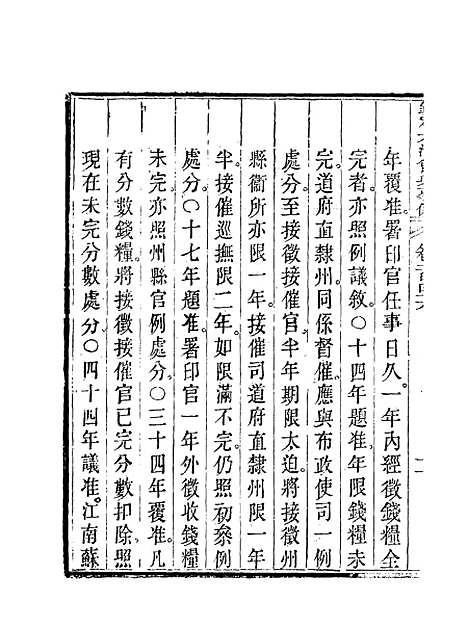 年覆准署印官任事日久。一年內經徵錢糧全
完者亦照例議敘。〇十四年題准。年限錢糧未
完。道府直隸州。同係督催。應與布政使司一例
處分。至接徵接催官。半年期限太迫。將接徵州
縣衞所亦限一年。接催司道府直隸州限一年
半。接催巡撫限二年。如限滿不完。仍照初叅例
處分。〇十七年題准。署印官一年外徵收錢糧
未完。亦照州縣官例處分。〇三十四年覆准。凡
有分數錢糧。將接徵接催官已完分數扣除。照
現在未完分數處分。〇四十四年議准。江南蘇